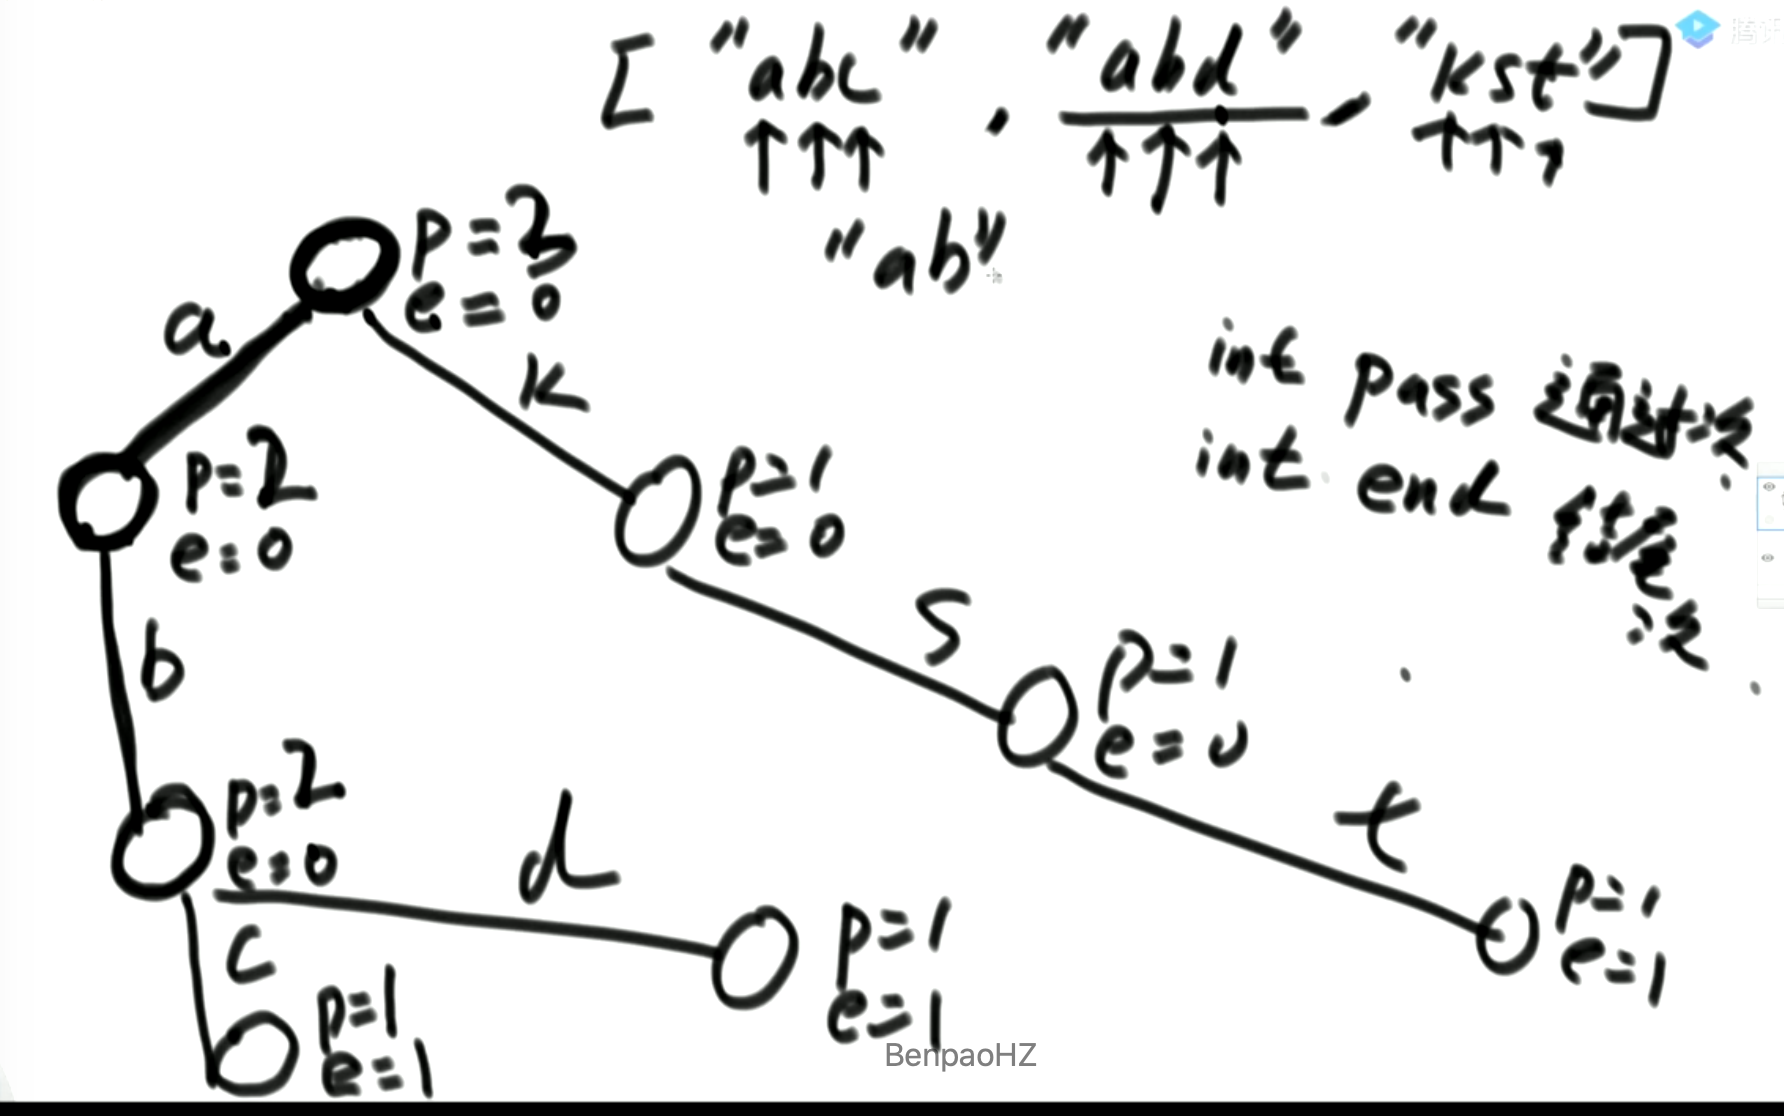 ["abc", "abd", "kst"]
"ab"
p=3
e=0
a
k
int pass 通过次数
int end 结尾次数
p=2
e=0
p=1
e=0
b
s
p=1
e=0
p=2
e=0
d
t
c
p=1
e=1
p=1
e=1
p=1
e=1
BenpaoHZ